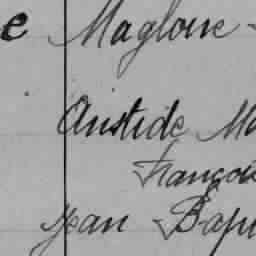 e Magloire
Aristide Ma
François
Jean Bap